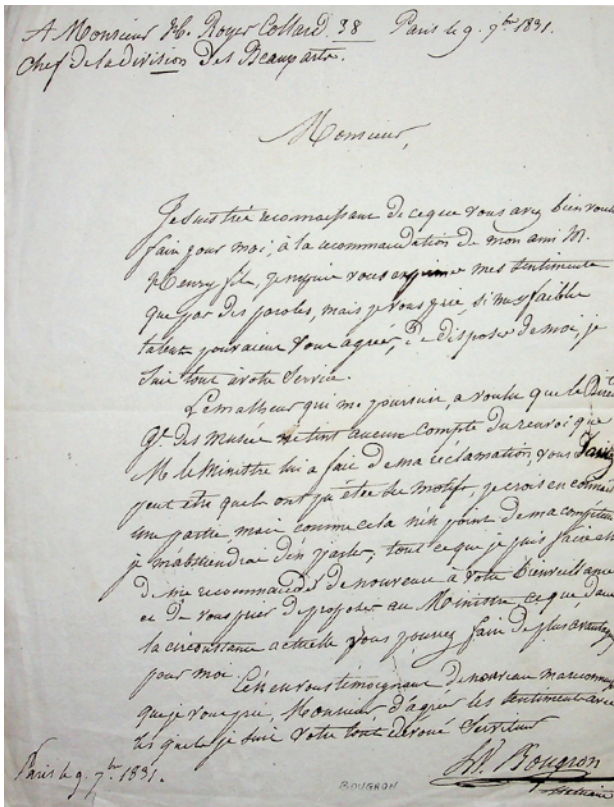 A Monsieur H. Royer Collard. 38 Paris le 9. 7bre 1831.
Chef de la division des Beauxarts.
Monsieur,
Je suis très reconnaissant de ceque vous avez bien voulu
faire pour moi, à la recommandation de mon ami M.
Henry fils, je ne puis vous exprimer mes sentiments
que par des paroles, mais je vous prie, si mes faibles
talents pouvaient vous agréer, de disposer de moi, je
suis tout à votre service.
Le malheur qui me poursuit, a voulu que le Direc
Gal. des musées ne tint aucun compte du renvoi que
M. le Ministre lui a fait de ma réclamation, vous
peut être quels ont pu être les motifs, je crois en connai
une partie, mais comme cela n'est point de ma compéten
je m'abstiendrai d'en parler, tout ce que je puis faire est
de me recommander de nouveau à votre bienveillance
et de vous prier de proposer au Ministre, ce que, dans
la circonstance actuelle vous pourrez faire de plus avantag
pour moi.
C'est en vous témoignant de nouveau ma reconnai
que je vous prie, Monsieur d'agréer les sentiments avec
les quels je suis votre tout dévoué Serviteur
Bougron
Statuaire
Paris le 9. 7bre 1831.
BOUGRON